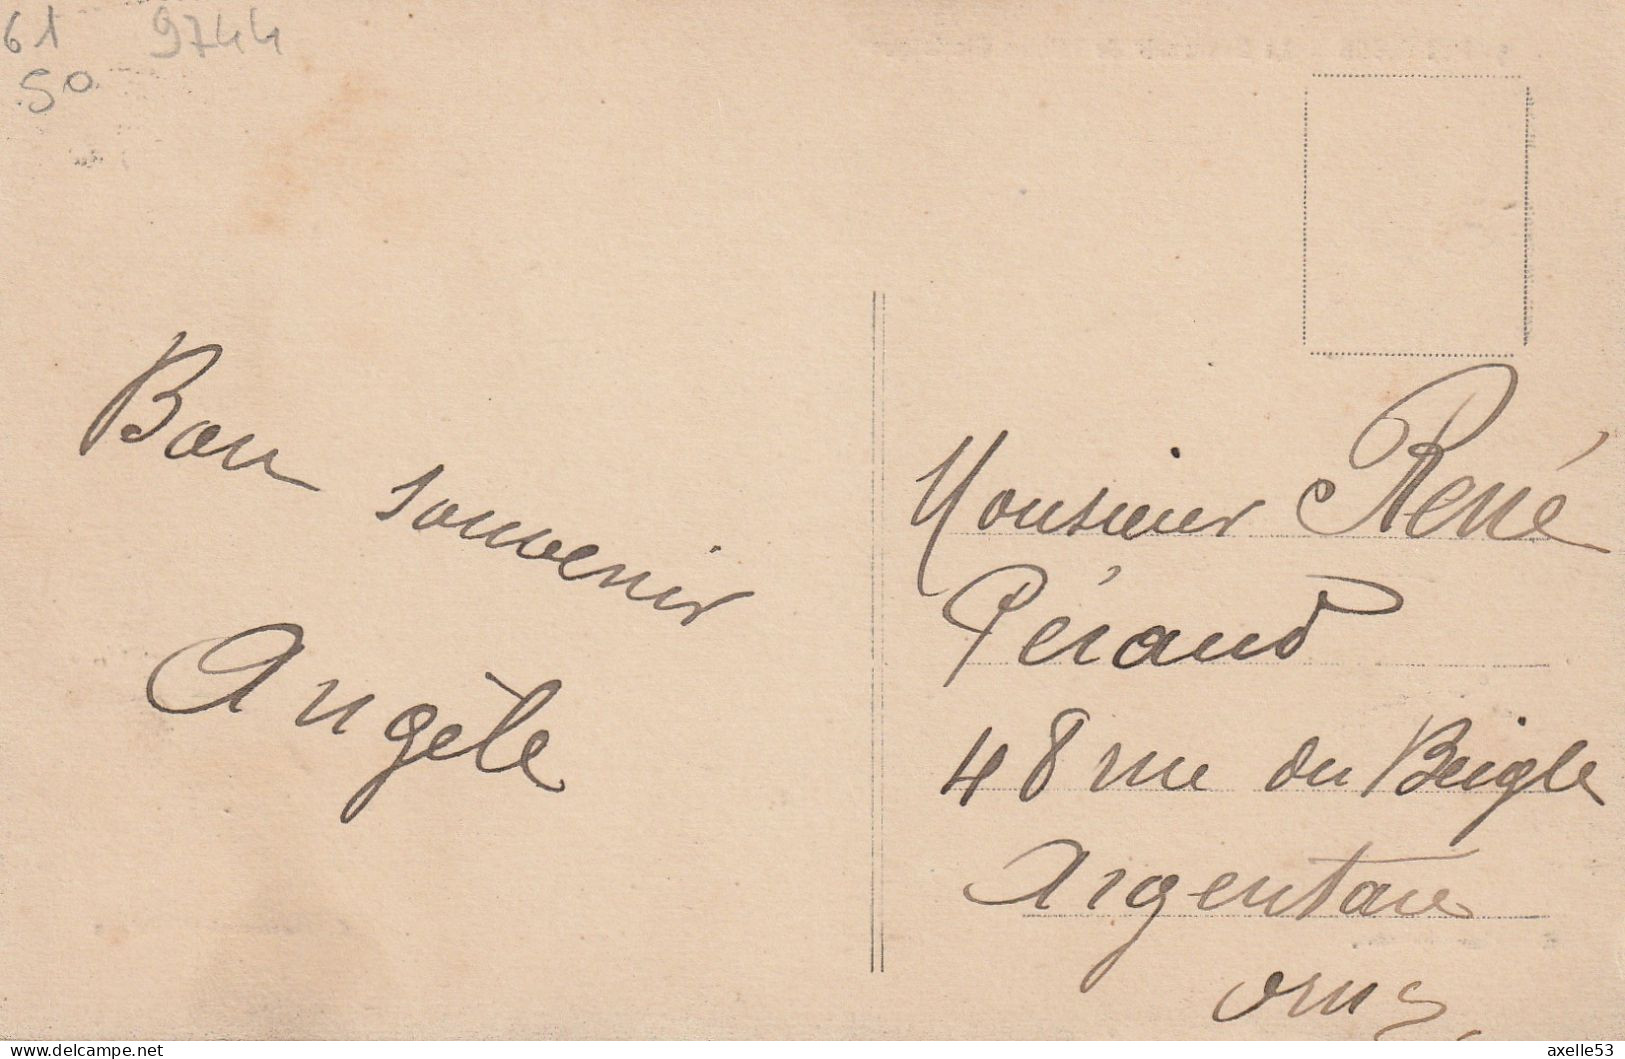 61 9744
50
Bon
souvenir
Angèle
Monsieur René
Péraud
48 rue du Beigle
Argentan
Orne
axelle53